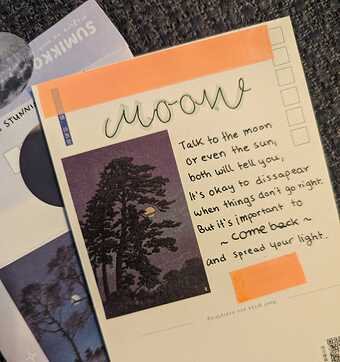 SUMIKKO
STUNNI
MOON
Talk to the moon
Or even the sun,
both will tell you,
It's okay to dissapear
when things don't go right.
But it's important to
~ come back ~
and spread your light.